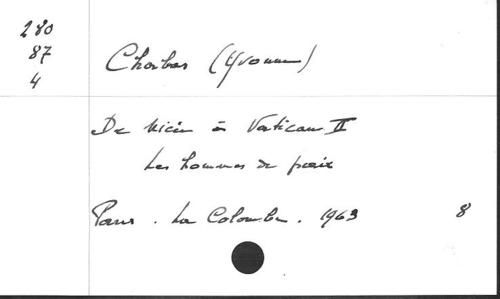 280
87
4
Chauban (Yvonne)
De Nicée à Vatican II
Les hommes de paix
Paris. La Colombe. 1963 8